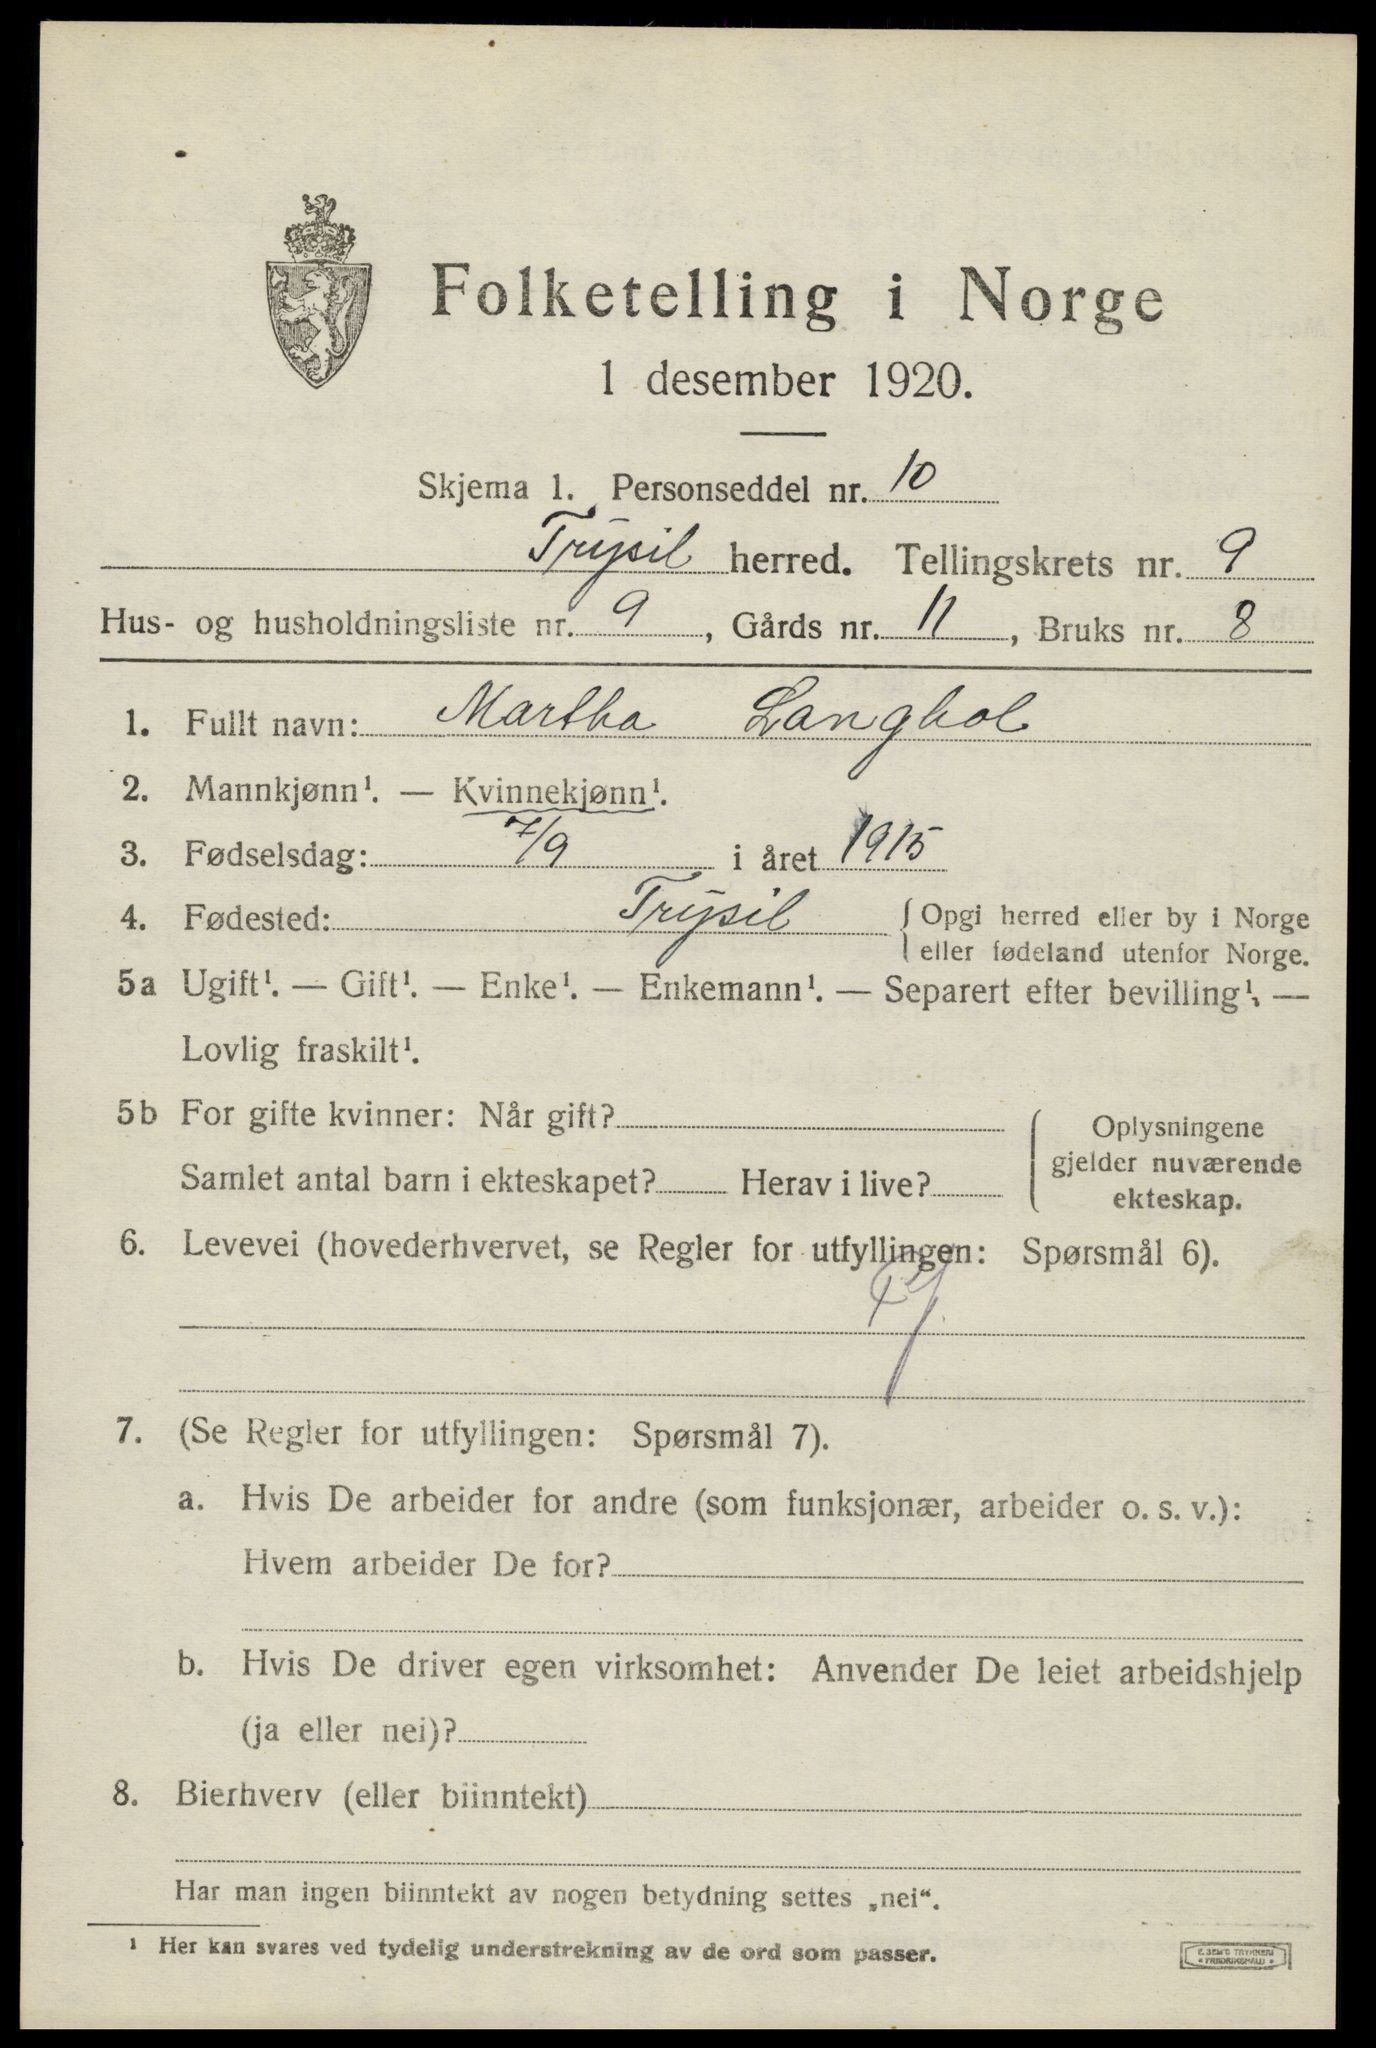 Folketelling i Norge
1 desember 1920.
Skjema 1. Personseddel nr. 10
Trysil herred. Tellingskrets nr. 9
Hus- og husholdningsliste nr. 9, Gårds nr. 11, Bruks nr. 8
1. Fullt navn: Martha Langbol
2. Mannkjønn¹. — Kvinnekjønn¹.
3. Fødselsdag: 7/9 i året 1915
4. Fødested: Trysil { Opgi herred eller by i Norge
eller fødeland utenfor Norge.
5a Ugift¹. — Gift¹. — Enke¹. — Enkemann¹. — Separert efter bevilling¹. —
Lovlig fraskilt¹.
5b For gifte kvinner: Når gift?
Samlet antal barn i ekteskapet? Herav i live?
Oplysningene
gjelder nuværende
ekteskap.
6. Levevei (hovederhvervet, se Regler for utfyllingen: Spørsmål 6).
7. (Se Regler for utfyllingen: Spørsmål 7).
a. Hvis De arbeider for andre (som funksjonær, arbeider o. s. v.):
Hvem arbeider De for?
b. Hvis De driver egen virksomhet: Anvender De leiet arbeidshjelp
(ja eller nei)?
8. Bierhverv (eller biinntekt)
Har man ingen biinntekt av nogen betydning settes „nei“.
¹ Her kan svares ved tydelig understrekning av de ord som passer.
E. SEM'S TRYKKERI
FREDRIKSHALD